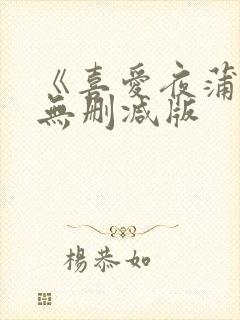 《喜愛夜蒲
無刪減版
楊恭如